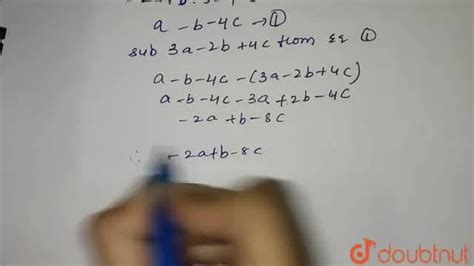 a - b - 4c → ①
sub 3a - 2b + 4c from ①
a - b - 4c - (3a - 2b + 4c)
a - b - 4c - 3a + 2b - 4c
- 2a + b - 8c
∴ - 2a + b - 8c
doubtnut